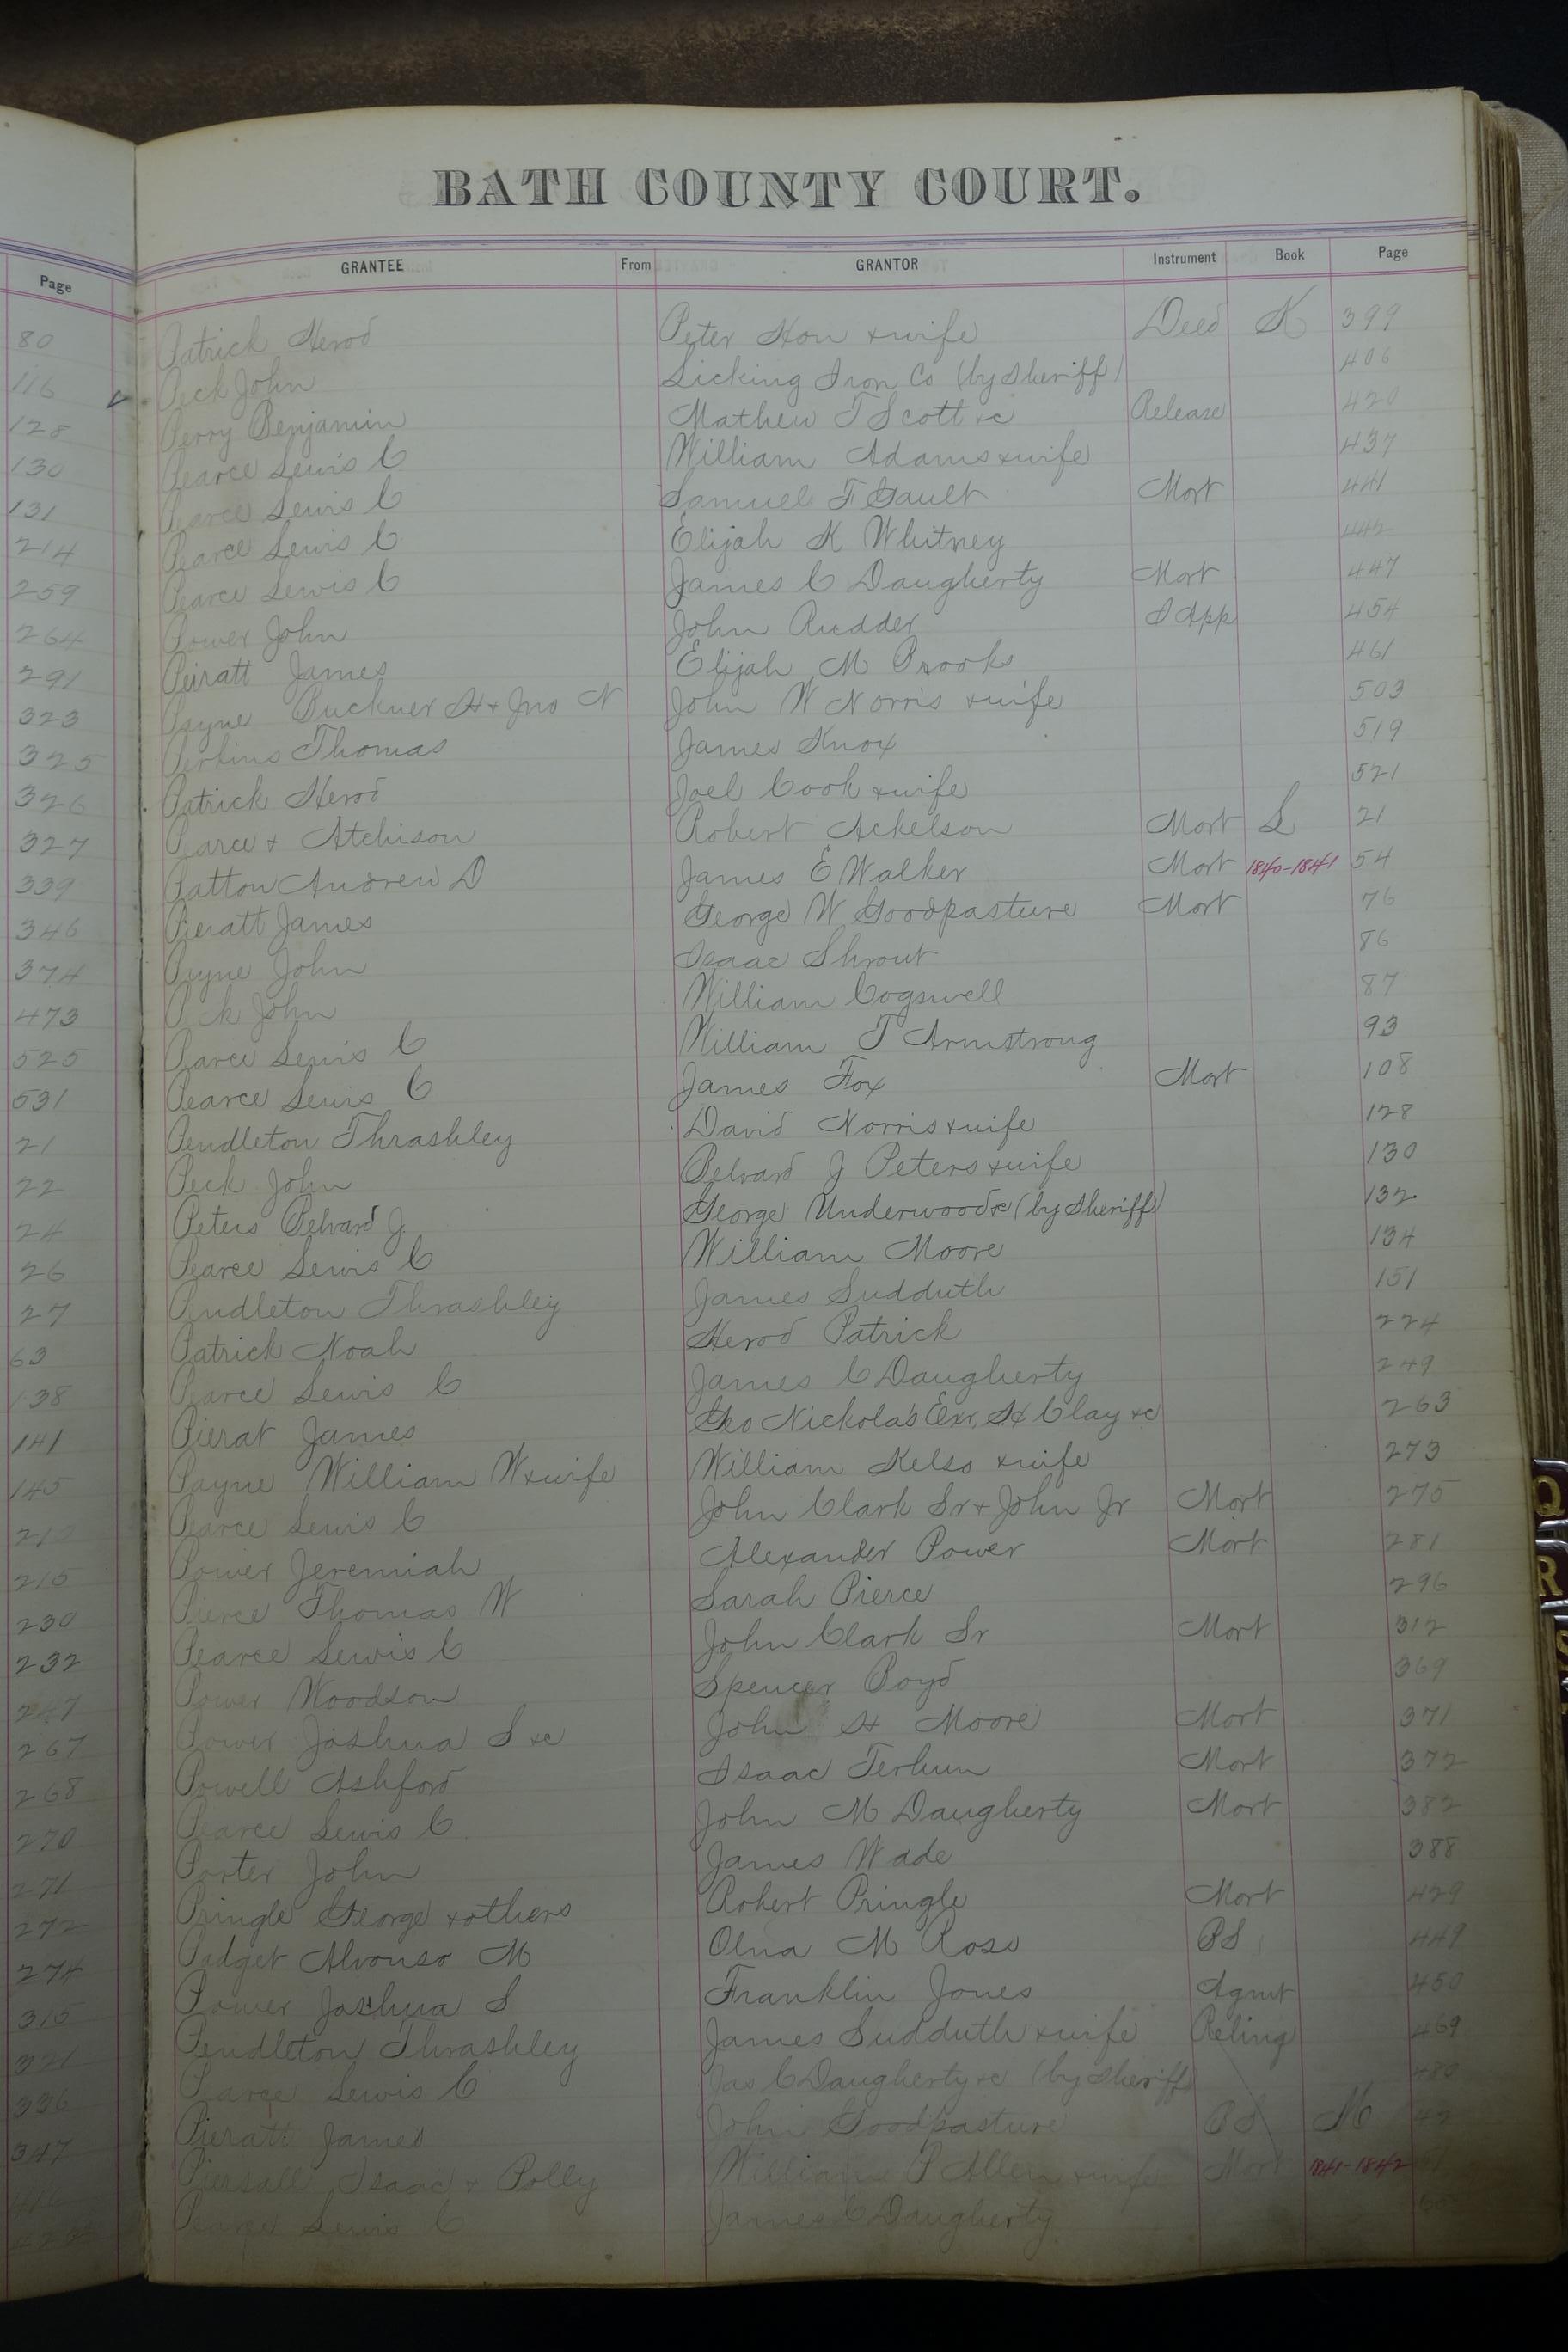 BATH COUNTY COURT.
Page GRANTEE From GRANTOR Instrument Book Page
80 Patrick Herod Peter Hon & wife Deed K 399
116 ✓ Peck John Licking Iron Co (by Sheriff) 406
128 Perry Benjamin Mathew T Scott &c Release 420
130 Pearce Lewis C William Adams & wife 437
131 Pearce Lewis C Samuel F Gault Mort 441
214 Pearce Lewis C Elijah K Whitney 442
259 Pearce Lewis C James C Daugherty Mort 447
264 Power John John Rudder App 454
291 Peiratt James Elijah M Brooks 461
323 Payne Buckner H & Jno N John W Norris & wife 503
325 Perkins Thomas James Knox 519
326 Patrick Herod Joel Cook & wife 521
327 Pearce & Atchison Robert Ackelson Mort L 21
339 Patton Andrew D James E Walker Mort 1840-1841 54
346 Pieratt James George W Goodpasture Mort 76
374 Payne John Isaac Shrout 86
473 Peck John William Cogswell 87
525 Pearce Lewis C William T Armstrong 93
531 Pearce Lewis C James Fox Mort 108
21 Pendleton Thrashley David Norris & wife 128
22 Peck John Belvard J Peters & wife 130
24 Peters Belvard J. George Underwood &c (by Sheriff) 132
26 Pearce Lewis C William Moore 134
27 Pendleton Thrashley James Sudduth 151
63 Patrick Noah Herod Patrick 224
138 Pearce Lewis C James C Daugherty 249
141 Pierat James Geo Nickola's Exr, H Clay &c 263
145 Payne William W & wife William Kelso & wife 273
Pearce Lewis C John Clark Sr & John Jr Mort 275
215 Power Jeremiah Alexander Power Mort 281
230 Pierce Thomas W Sarah Pierce 296
232 Pearce Lewis C John Clark Sr Mort 312
247 Power Woodson Spencer Boyd 369
267 Power Joshua S &c John H Moore Mort 371
268 Powell Ashford Isaac Terhun Mort 372
270 Pearce Lewis C John M Daugherty Mort 382
271 Porter John James Wade 388
272 Pringle George & others Robert Pringle Mort 429
274 Padget Alvonso M Olna M Rose BS 449
315 Power Joshua S Franklin Jones Agmt 450
321 Pendleton Thrashley James Sudduth & wife Relinq 469
336 Pearce Lewis C Jas C Daugherty &c (by Sheriff) 480
347 Pieratt James John Goodpasture BS M 42
Piersall Isaac & Polly William P Allen & wife Mort 1841-1842
Pearce Lewis C James C Daugherty
Q
R
S